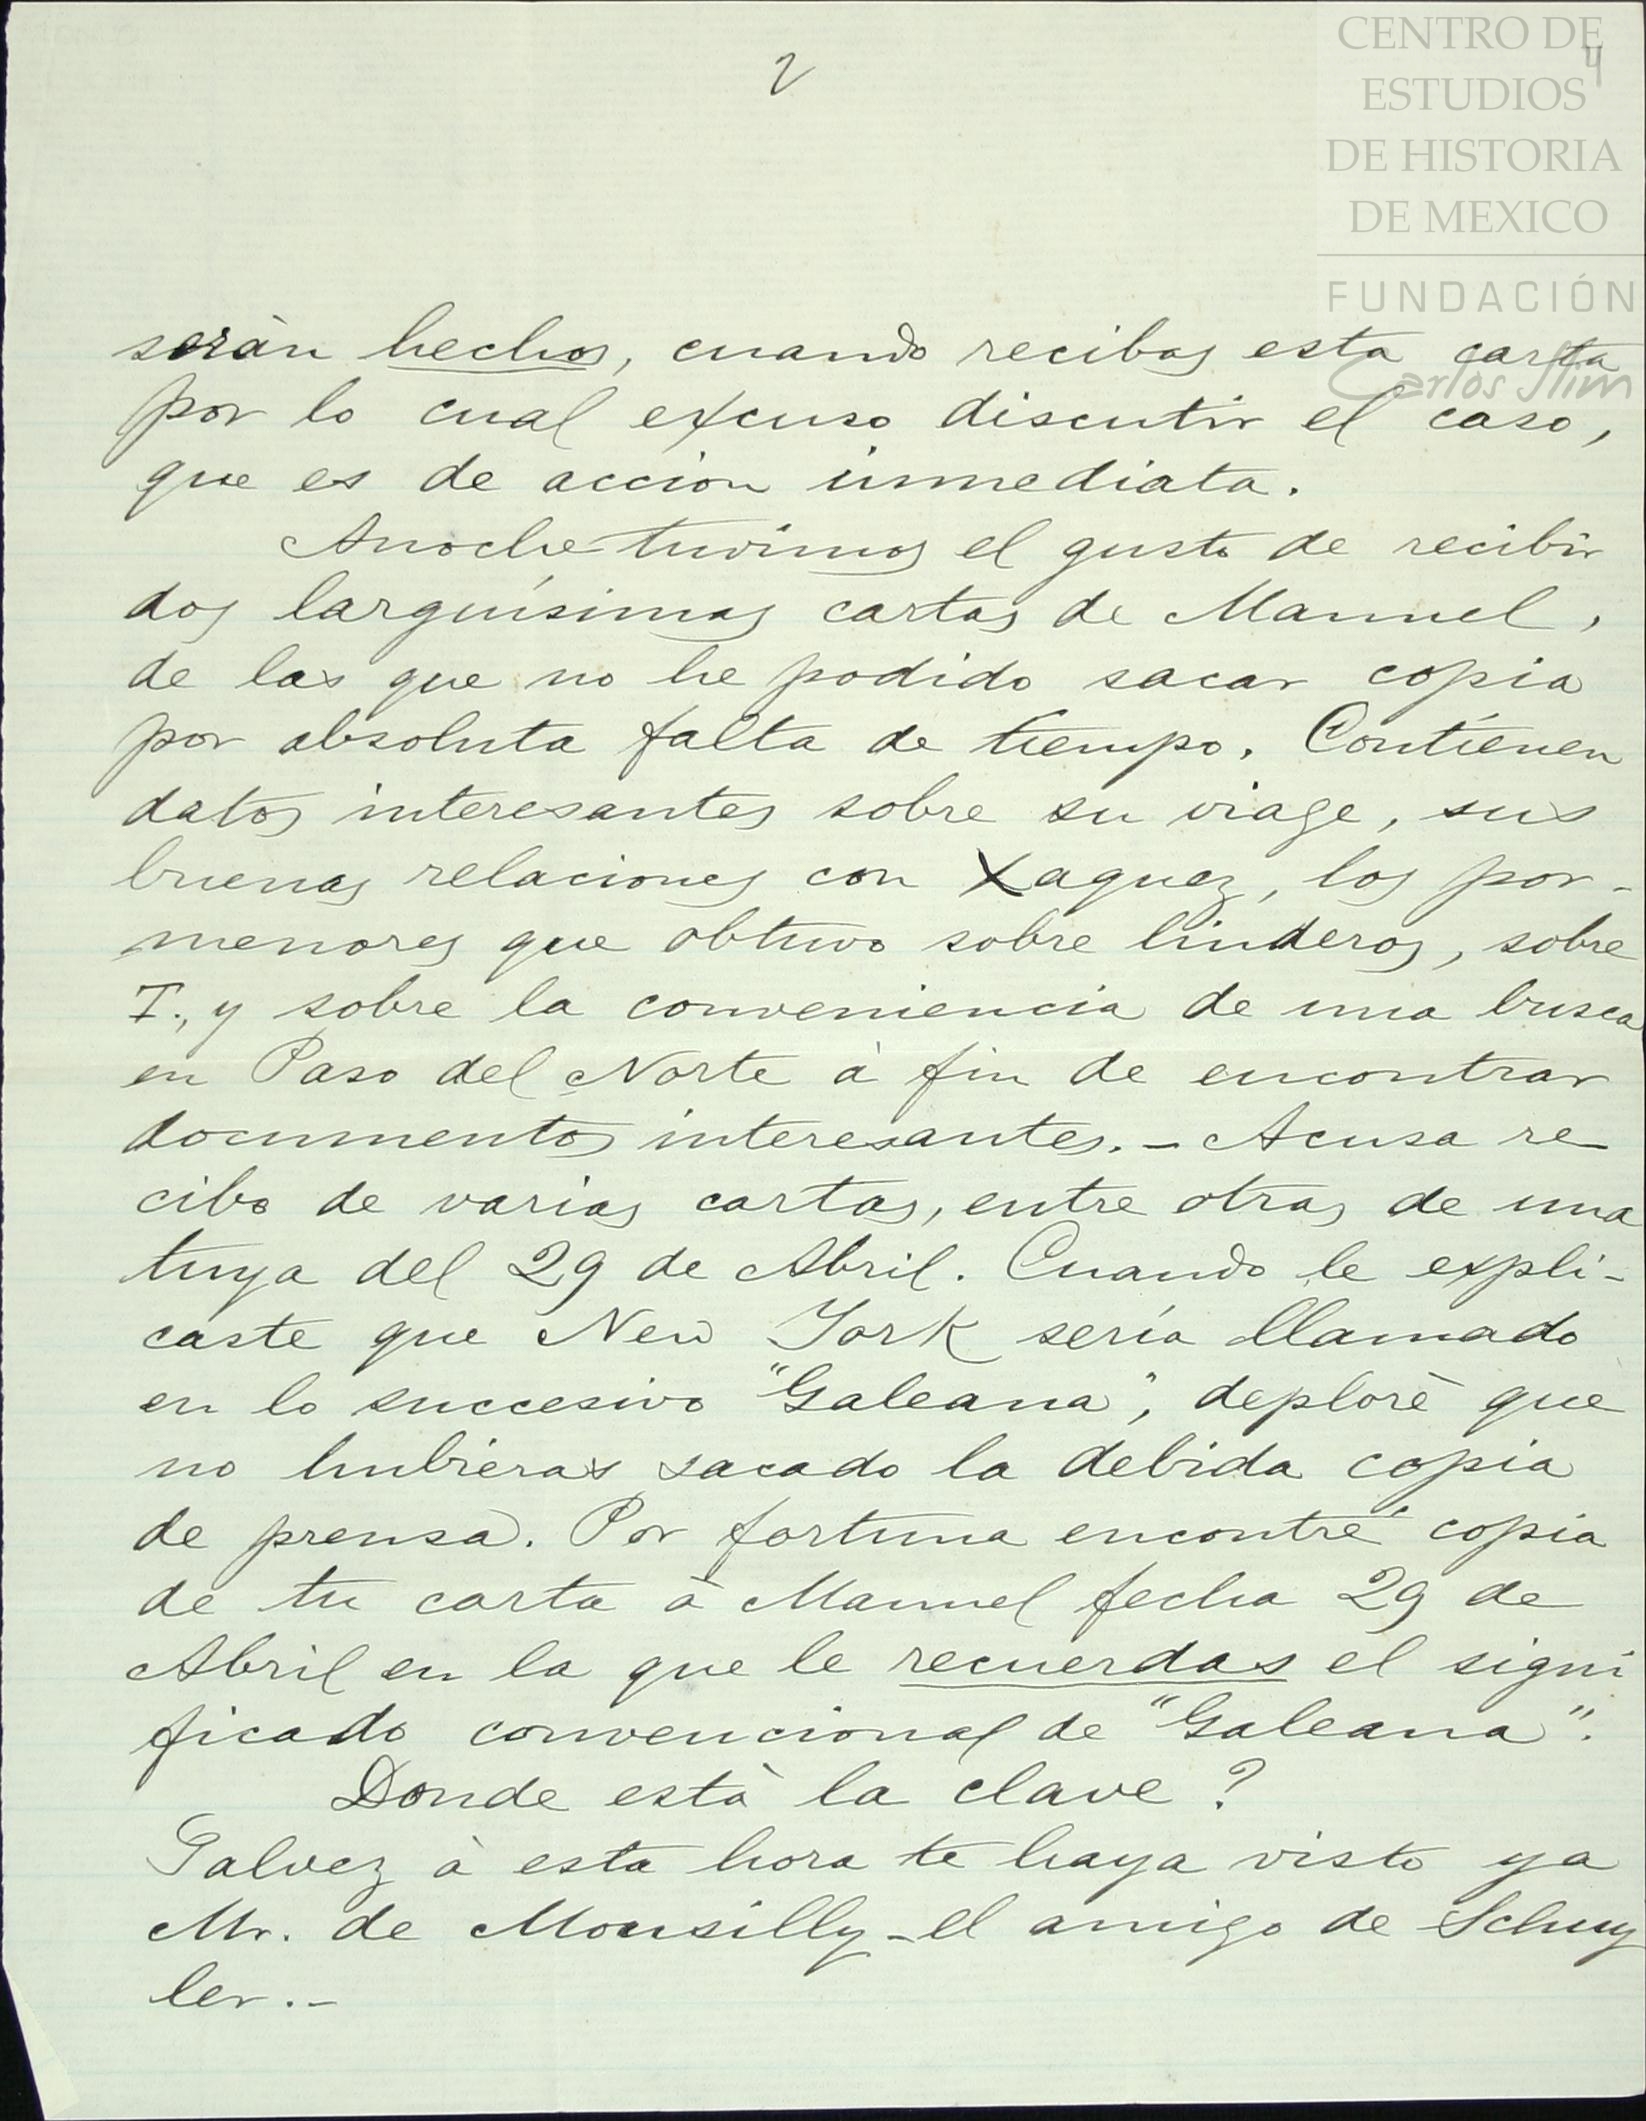 2
4
CENTRO DE
ESTUDIOS
DE HISTORIA
DE MEXICO
FUNDACIÓN
Carlos Slim
seràn hechos, cuando recibas esta carta
por lo cual excuso discutir el caso,
que es de accion inmediata.
Anoche tuvimos el gusto de recibir
dos larguísimas cartas de Manuel,
de las que no he podido sacar copia
por absoluta falta de tiempo. Contienen
datos interesantes sobre su viage, sus
buenas relaciones con Xaquez, los por-
menores que obtuvo sobre linderos, sobre
T., y sobre la conveniencia de una busca
en Paso del Norte à fin de encontrar
documentos interesantes.- Acusa re-
cibo de varias cartas, entre otras de una
tuya del 29 de Abril. Cuando le expli-
caste que New York sería llamado
en lo succesivo "Galeana", deplorè que
no hubieras sacado la debida copia
de prensa. Por fortuna encontré copia
de tu carta à Manuel fecha 29 de
Abril en la que le recuerdas el signi
ficado convencional de "Galeana".
Donde està la clave?
Galvez à esta hora te haya visto ya
Mr. de Monsilly - el amigo de Schuy
ler.-